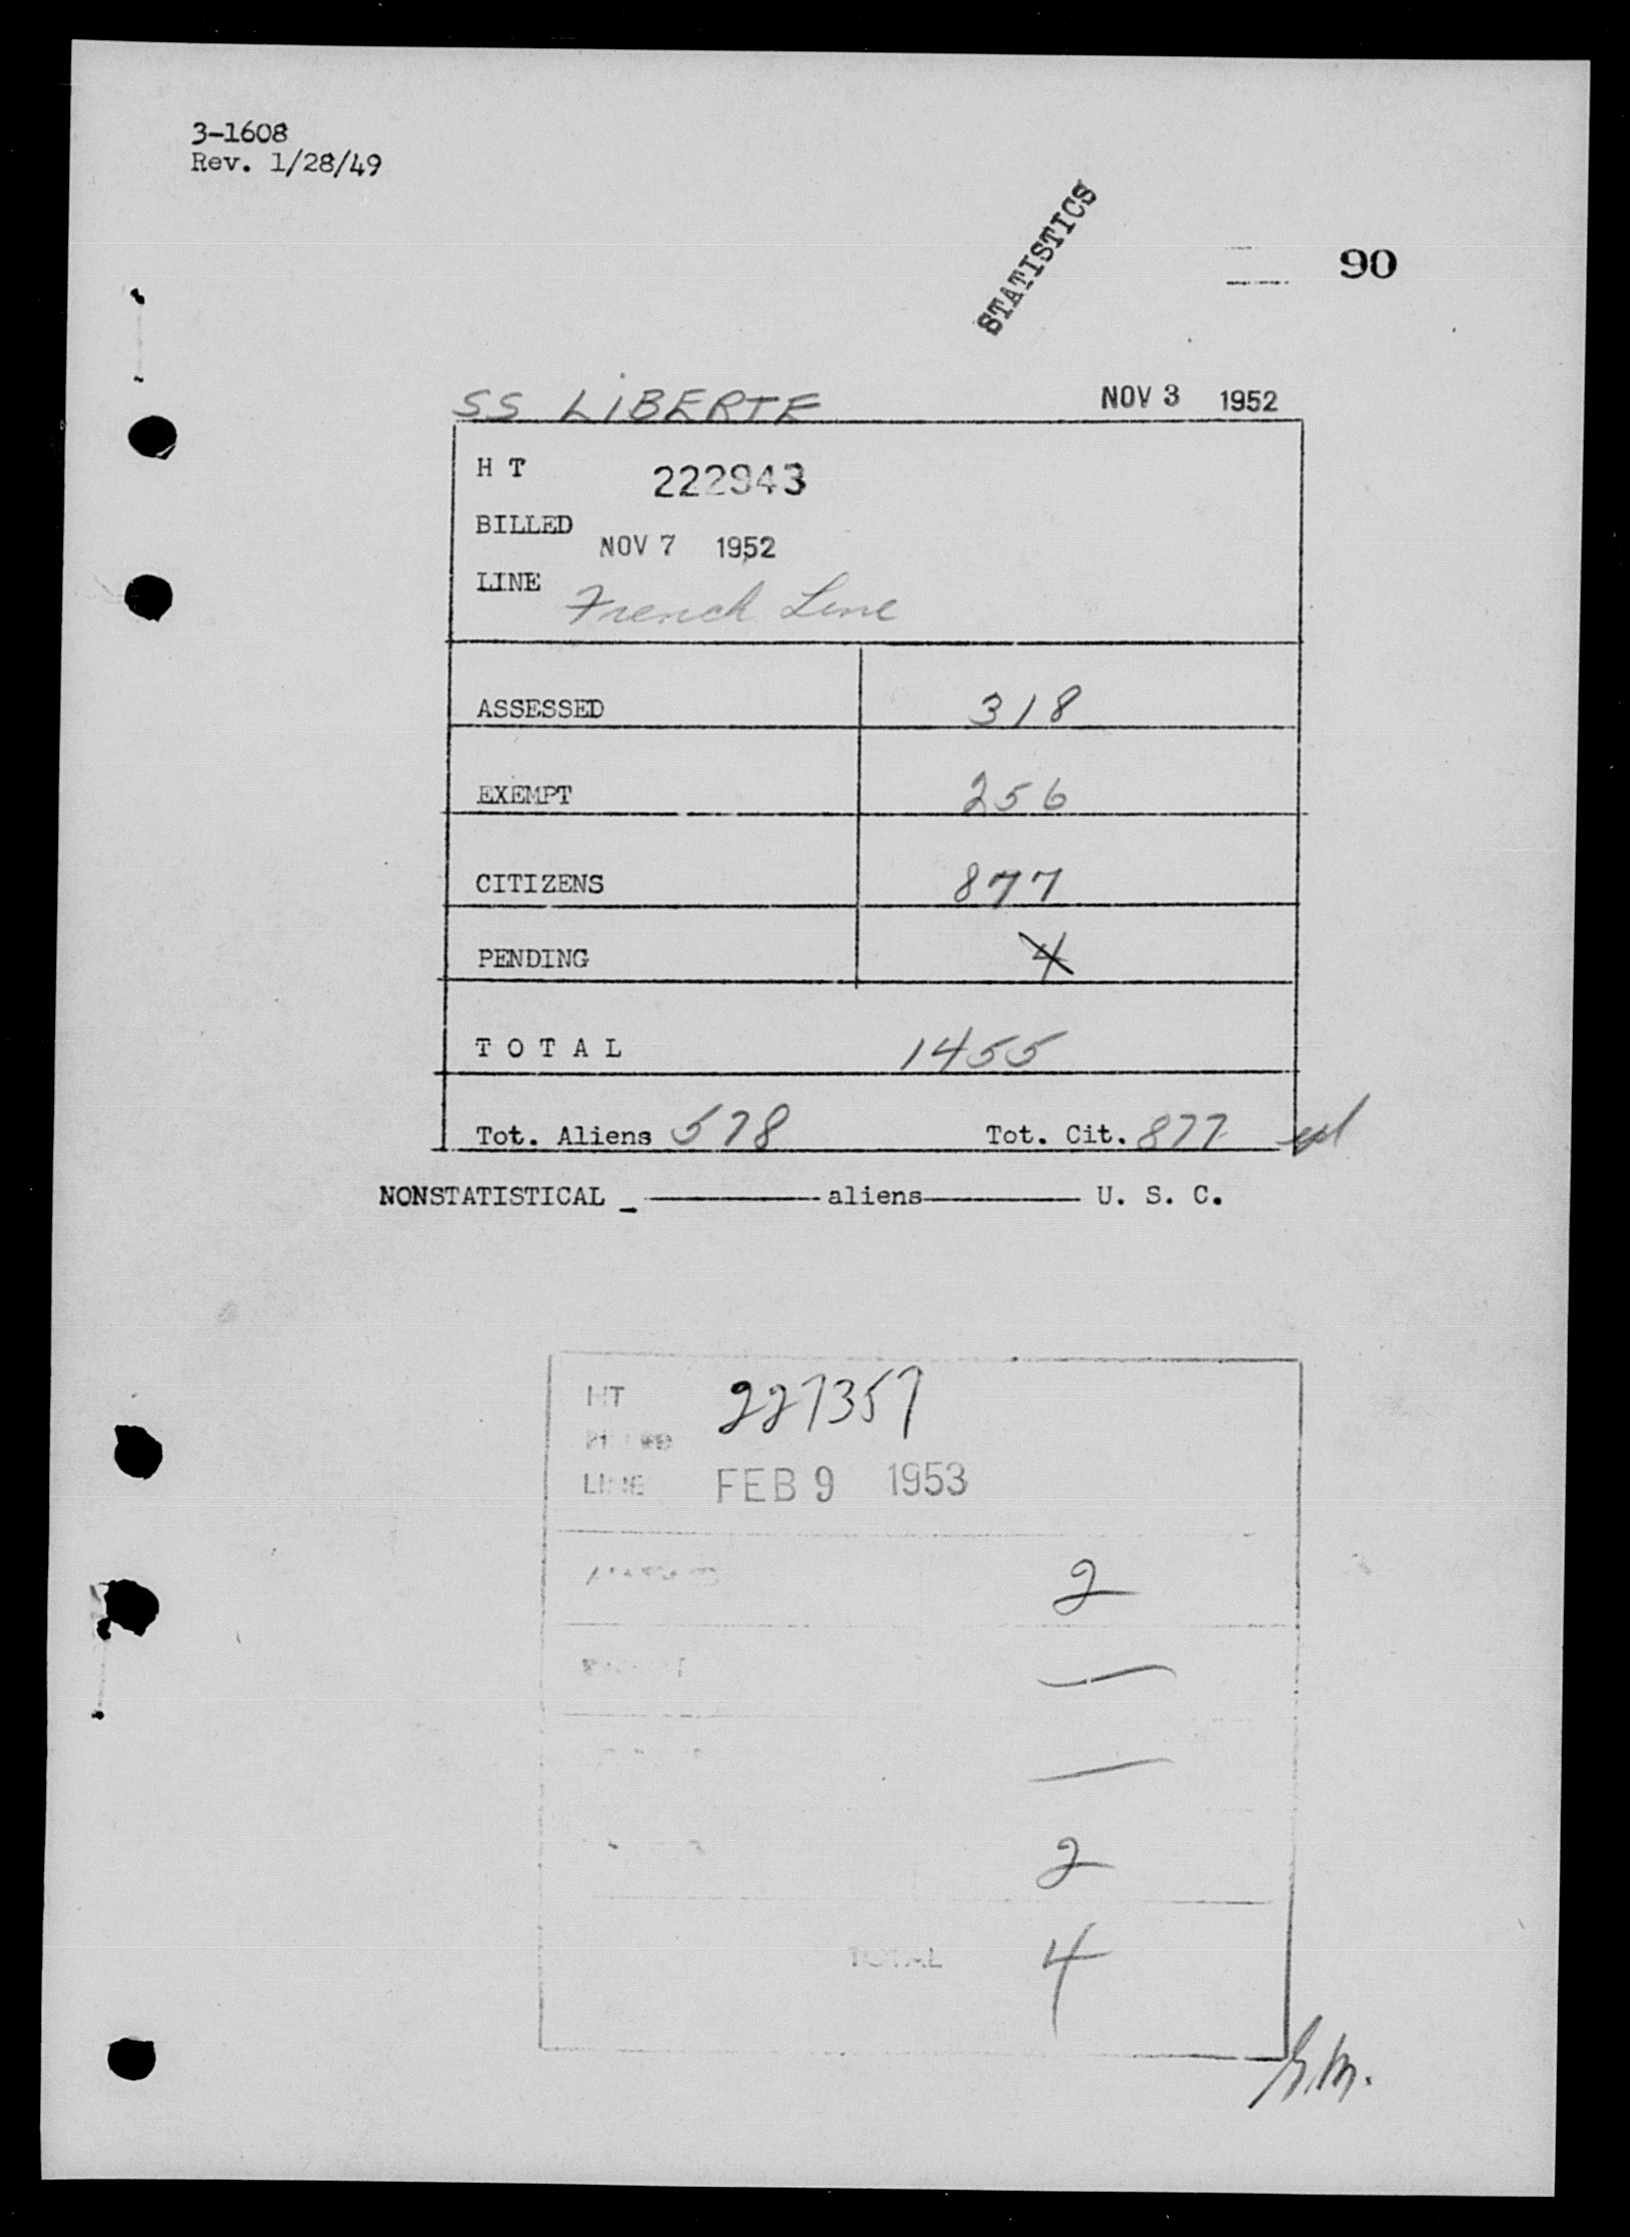 3-1608
Rev. 1/28/49
STATISTICS
90
SS LIBERTE NOV 3 1952
H T 222943
BILLED NOV 7 1952
LINE French Line
ASSESSED 318
EXEMPT 256
CITIZENS 877
PENDING 4
T O T A L 1455
Tot. Aliens 578 Tot. Cit. 877
NONSTATISTICAL _ ———— aliens———— U. S. C.
HT 227357
LINE FEB 9 1953
2
—
—
2
TOTAL 4